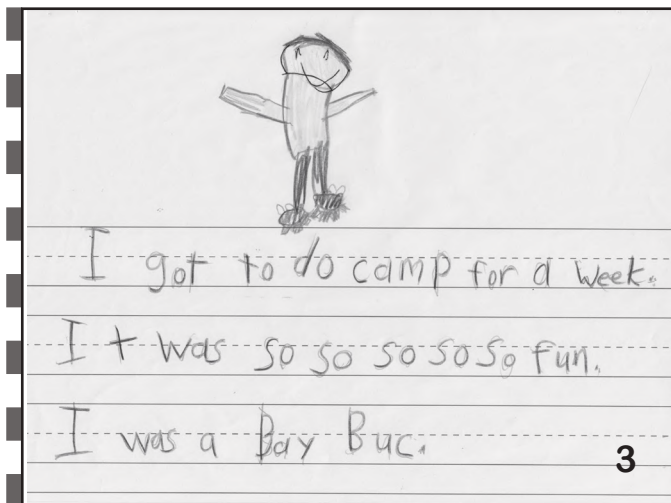 I got to do camp for a week.
It was so so so so so fun.
I was a Bay Buc.
3